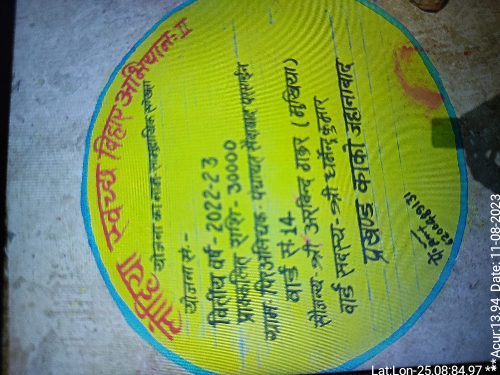 लोहिया स्वच्छ बिहार अभियान-II
योजना का नाम- सामुदायिक सोखता
योजना सं.-
वित्तीय वर्ष - 2022-23
प्राक्कलित राशि- 30000
ग्राम- पिरअलिचक- पंचायत
वार्ड सं- 14
सौजन्य- श्री अरबिन्द ठाकुर (मुखिया)
वार्ड सदस्य- श्री धर्मेन्द्र कुमार
प्रखण्ड काको जहानाबाद
Lat:Lon-25,08:84,97 **Acur:13.94, Date: 11-08-2023